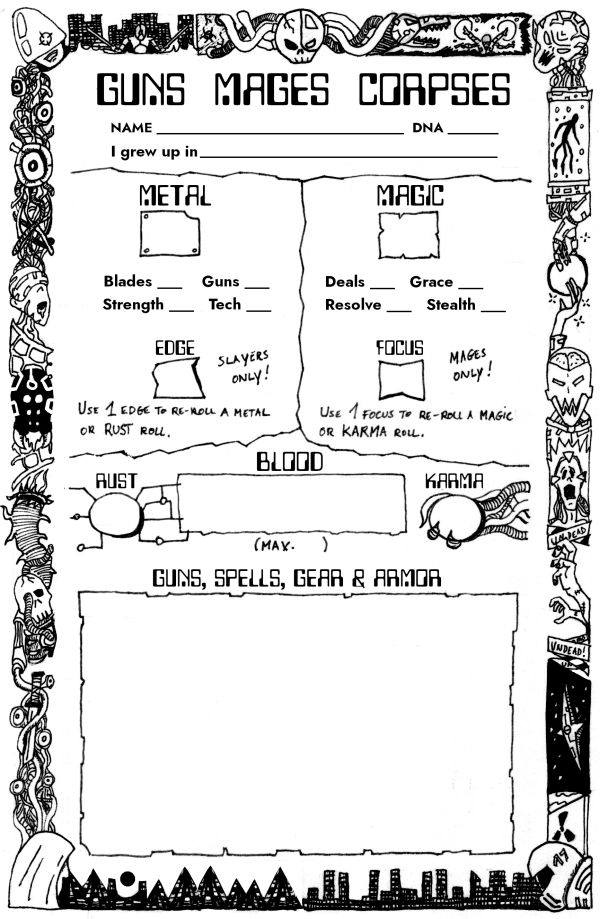 GUNS MAGES CORPSES
NAME DNA
I grew up in
METAL
Blades Guns
Strength Tech
EDGE
SLAYERS
ONLY!
USE 1 EDGE TO RE-ROLL A METAL
OR RUST ROLL.
MAGIC
Deals Grace
Resolve Stealth
FOCUS
MAGES
ONLY!
USE 1 FOCUS TO RE-ROLL A MAGIC
OR KARMA ROLL.
BLOOD
RUST
KARMA
(MAX. )
GUNS, SPELLS, GEAR & ARMOR
UNDEAD
UNDEAD!